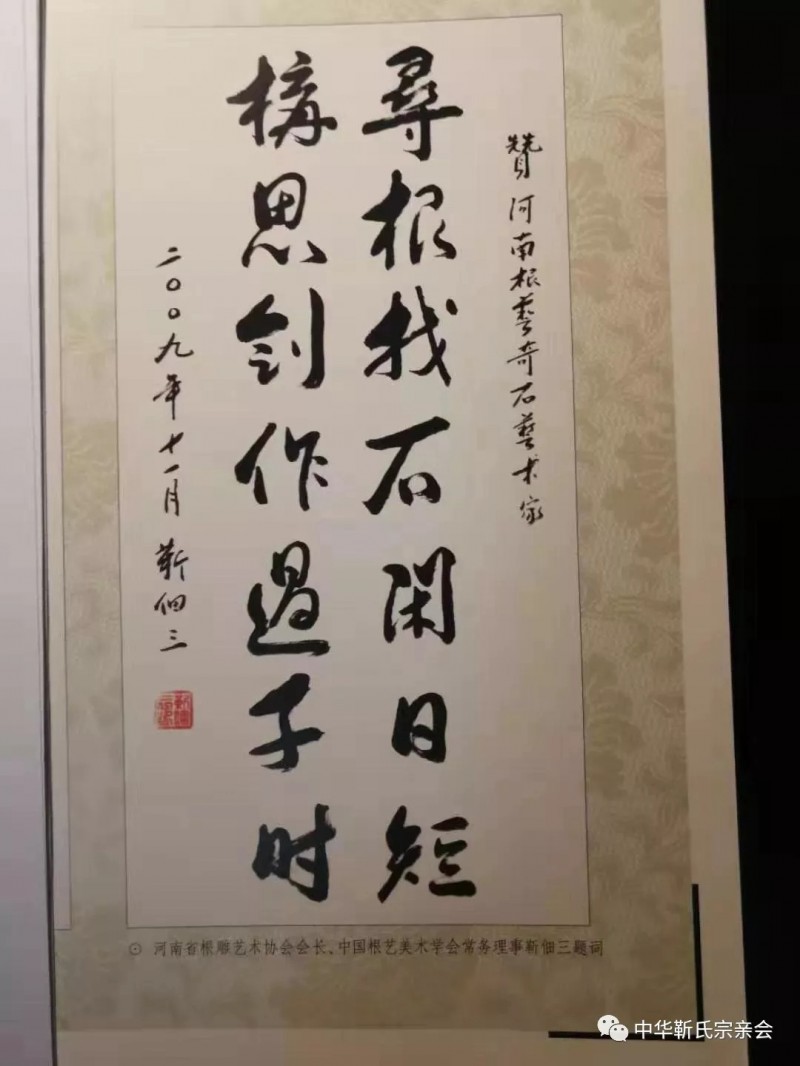 贊河南根藝奇石藝术家
尋根找石闲日短
構思创作過子时
二〇〇九年十一月 靳佃三
⊙ 河南省根雕艺术协会会长、中国根艺美术学会常务理事靳佃三题词
中华靳氏宗亲会